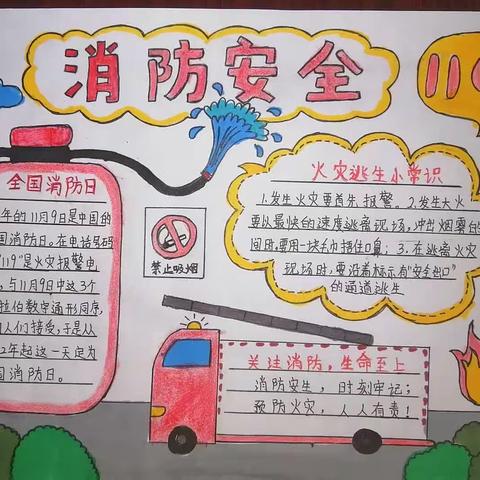 消防安全
119
全国消防日
年的11月9日是中国的
国消防日。在电话号码
"119"是火灾报警电
,与11月9日中这3个
拉伯数字通形同序,
人们接受,于是从
2年起这一天定为
国消防日。
禁止吸烟
火灾逃生小常识
1.发生火灾要首先报警。2.发生大火
要以最快的速度逃离现场,冲出烟雾的
间时,要用一块毛巾捂住口鼻;3.在逃离火灾
现场时,要沿着标示有"安全出口"
的通道逃生
关注消防,生命至上
消防安全,时刻牢记;
预防火灾,人人有责!